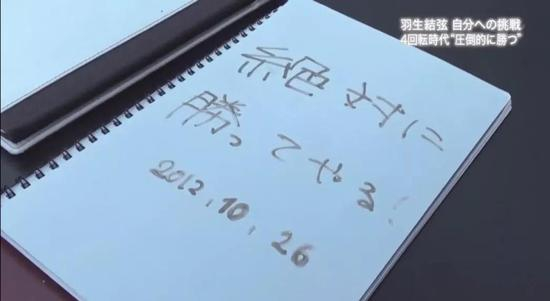 羽生結弦 自分への挑戦
4回転時代“圧倒的に勝つ”
絶対に
勝ってやる!
2012,10,26